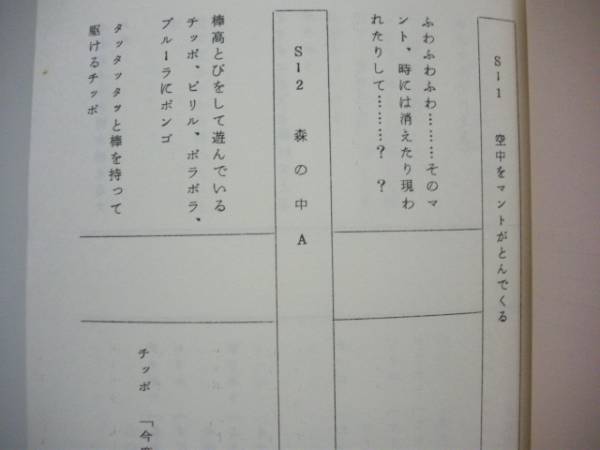 S11 空中をマントがとんでくる
ふわふわふわ………そのマ
ント、時には消えたり現わ
れたりして………? ?
S12 森の中A
棒高とびをして遊んでいる
チッポ、ピリル、ポラポラ、
ブルーラにボンゴ
タッタッタッと棒を持って
駆けるチッポ
チッポ 「今度